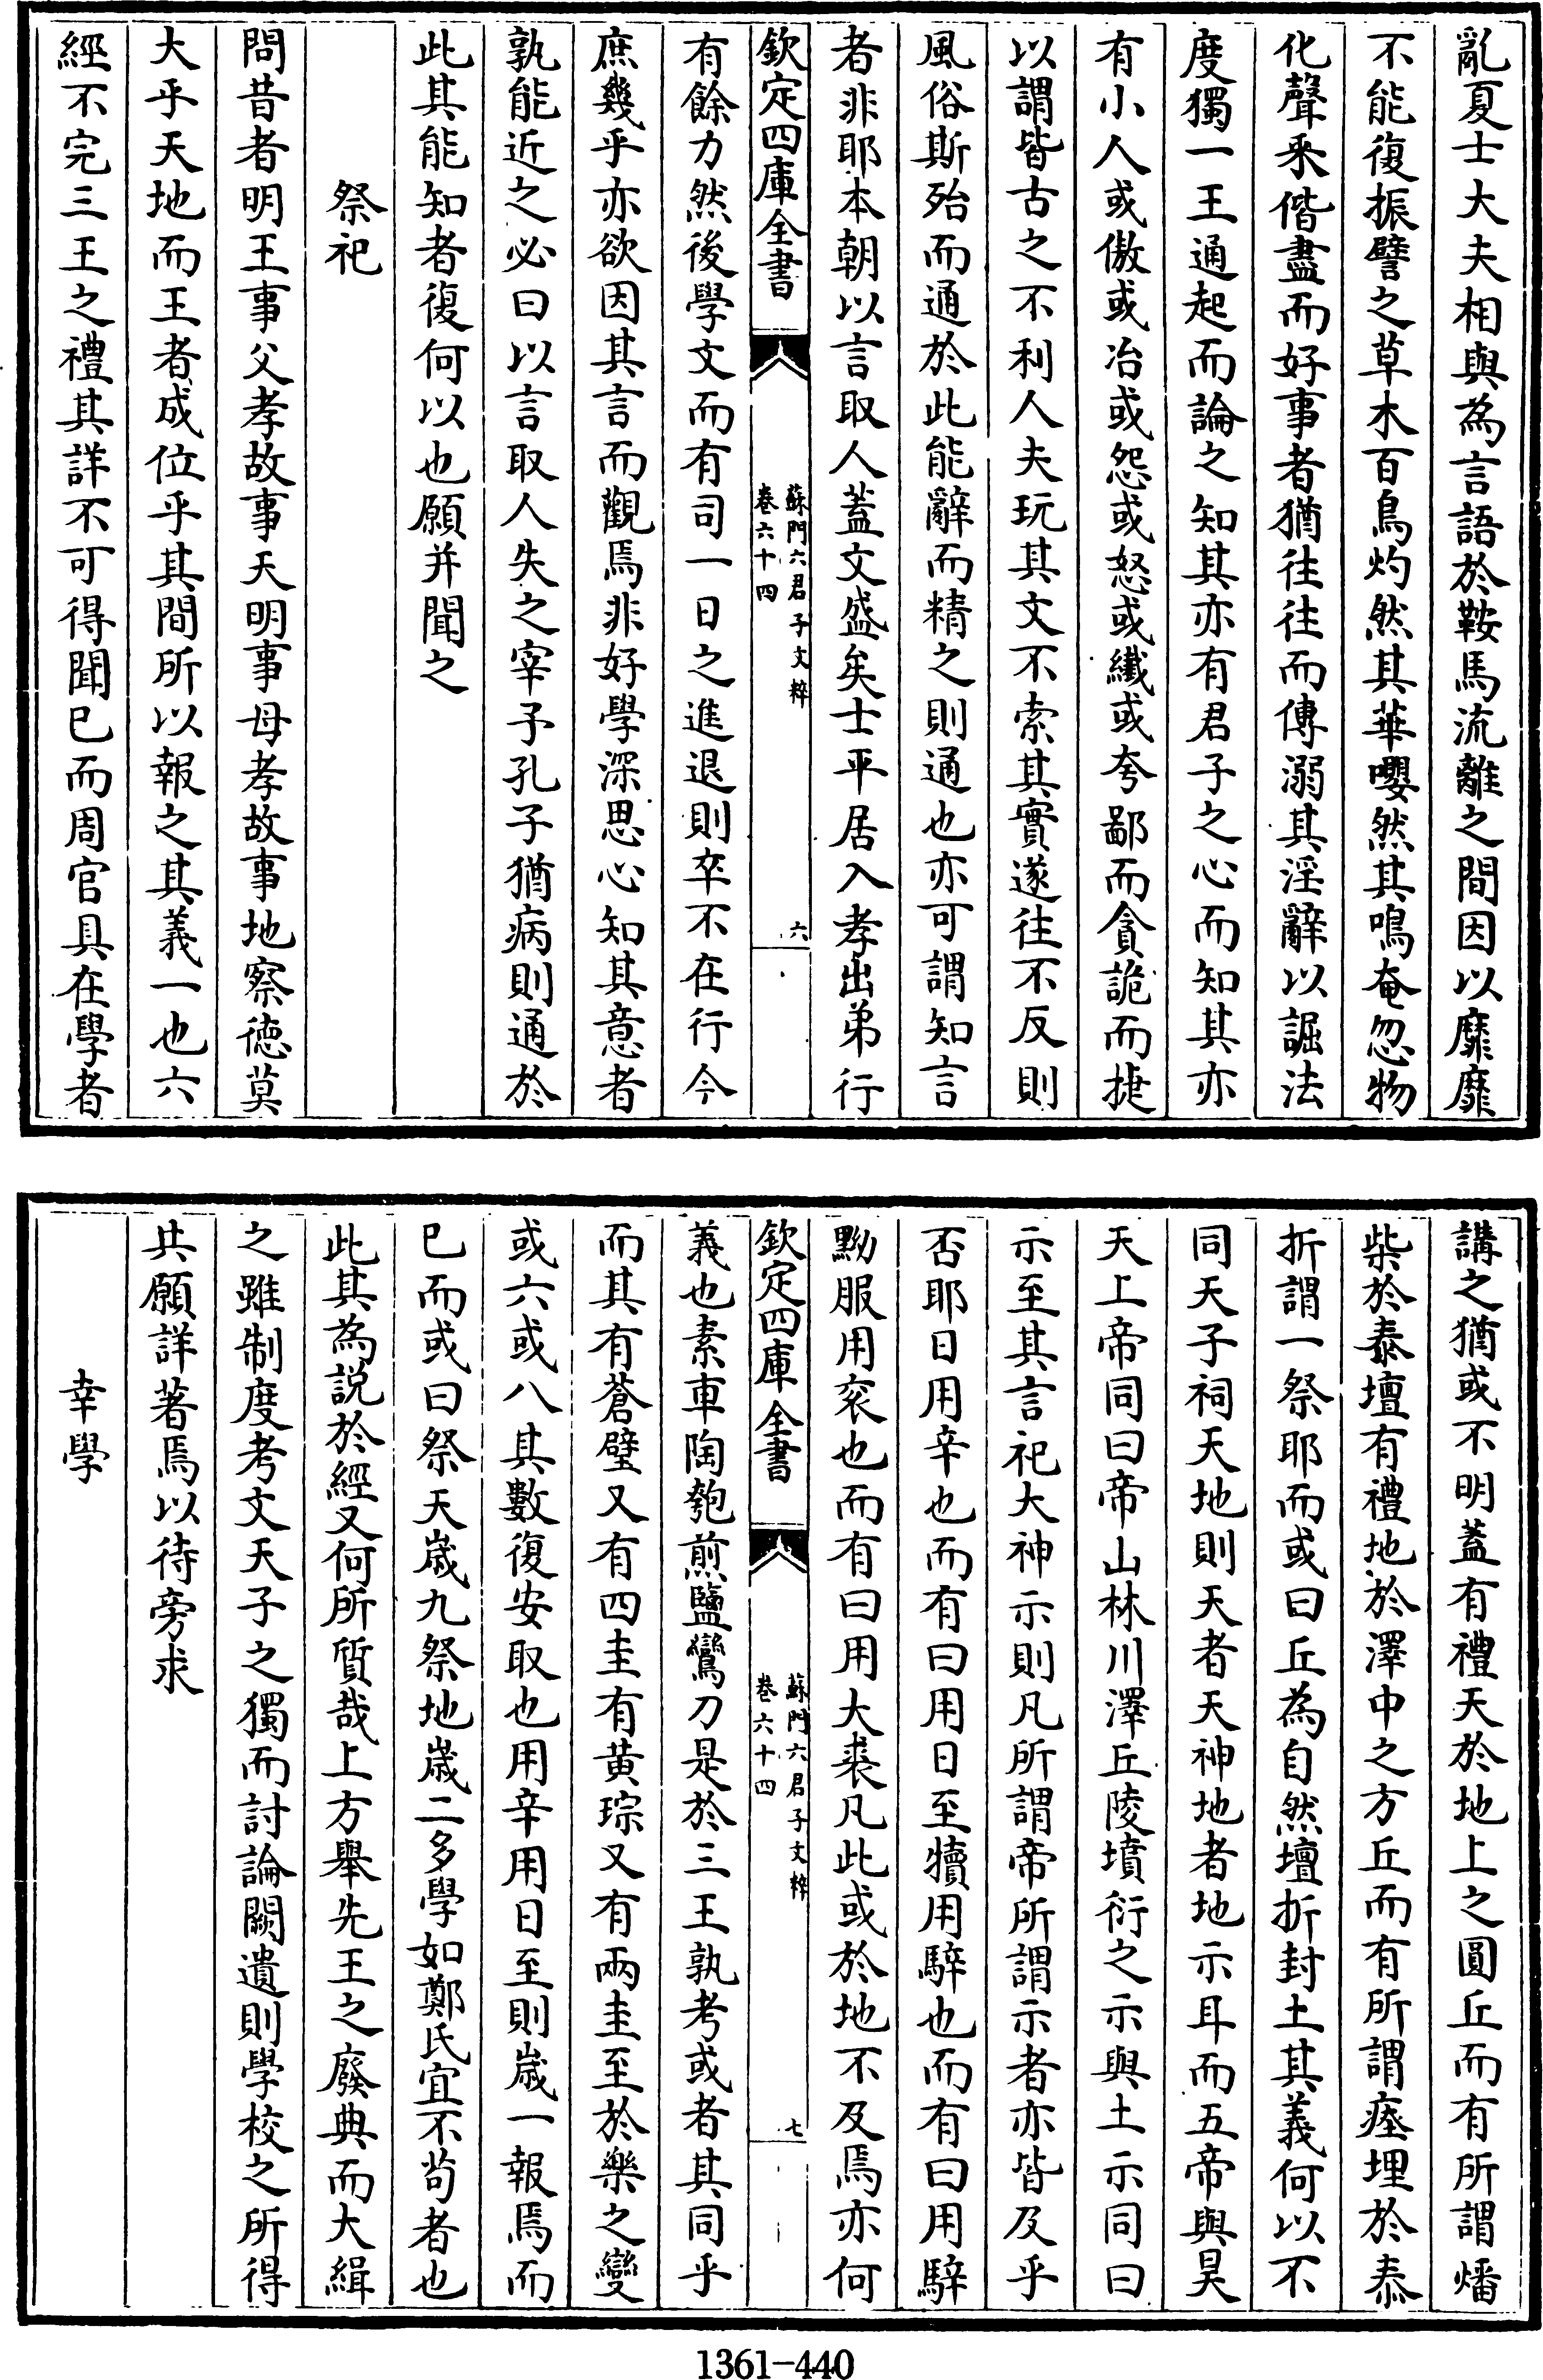 亂夏士大夫相與為言語於鞍馬流離之間因以靡靡
不能復振譬之草木百鳥灼然其華嚶然其鳴奄忽物
化聲采偕盡而好事者猶往往而傳溺其淫辭以詘法
度獨一王通起而論之知其亦有君子之心而知其亦
有小人或傲或冶或怨或怒或纖或夸鄙而貪詭而捷
以謂皆古之不利人夫玩其文不索其實遂往不反則
風俗斯殆而通於此能辭而精之則通也亦可謂知言
者非耶本朝以言取人蓋文盛矣士平居入孝出弟行
欽定四庫全書
蘇門六君子文粹
卷六十四
六
有餘力然後學文而有司一日之進退則卒不在行今
庶幾乎亦欲因其言而觀焉非好學深思心知其意者
孰能近之必曰以言取人失之宰予孔子猶病則通於
此其能知者復何以也願并聞之
祭祀
問昔者明王事父孝故事天明事母孝故事地察德莫
大乎天地而王者成位乎其間所以報之其義一也六
經不完三王之禮其詳不可得聞已而周官具在學者
講之猶或不明蓋有禮天於地上之圓丘而有所謂燔
柴於泰壇有禮地於澤中之方丘而有所謂瘞埋於泰
折謂一祭耶而或曰丘為自然壇折封土其義何以不
同天子祠天地則天者天神地者地示耳而五帝與昊
天上帝同曰帝山林川澤丘陵墳衍之示與土示同曰
示至其言祀大神示則凡所謂帝所謂示者亦皆及乎
否耶日用辛也而有曰用日至犢用騂也而有曰用騂
黝服用衮也而有曰用大裘凡此或於地不及焉亦何
欽定四庫全書
蘇門六君子文粹
卷六十四
七
義也素車陶匏煎鹽鸞刀是於三王孰考或者其同乎
而其有蒼璧又有四圭有黄琮又有兩圭至於樂之變
或六或八其數復安取也用辛用日至則歳一報焉而
已而或曰祭天歳九祭地歳二多學如鄭氏宜不茍者也
此其為説於經又何所質哉上方舉先王之廢典而大緝
之雖制度考文天子之獨而討論闕遺則學校之所得
共願詳著焉以待旁求
幸學
1361-440